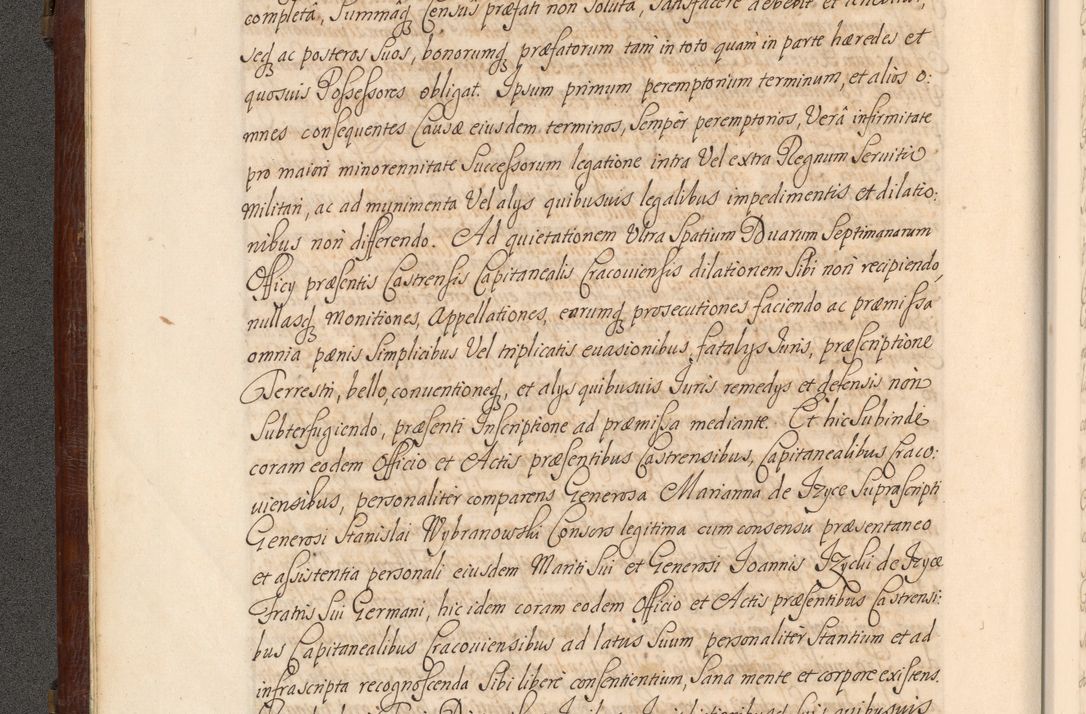 completâ, Summâq́ Censûs præfati non Soluta, Satisfacere debebit et
seq́ ac posteros suos, bonorumq́ præfatorum tam in toto quam in parte hæredes et
quosuis Possessores obligat. Ipsum primum peremptorium terminum, et alios o:
mnes consequentes Causæ eiusdem terminos, Semper peremptorios, Verâ infirmitate
pro maiori minorennitate Successorum legatione intra Vel extra Regnum Seruitio
Militari, ac ad munimenta Vel alys quibusuis legalibus impedimentis et dilatio:
nibus non differendo. Ad quietationem Ultra Spatium Duarum Septimanarum
Officy præsentis Castrensis Capitanealis Cracouiensis dilationem Sibi non recipiendo,
nullasq́ Monitiones, Appellationes, earumq́ prosecutiones faciendo ac præmissa
omnia pænis Simplicibus Vel triplicatis euasionibus, fatalys Juris, præscriptione
Terrestri, bello, conventioneq́, et alys quibusuis Juris remedys et defensis non
Subterfugiendo, præsenti Inscriptione ad præmissa mediante. Et hic Subinde
coram eodem Officio et Actis præsentibus Castrensibus, Capitanealibus Craco:
uiensibus, personaliter comparens Generosa Marianna de Izyce Suprascripti
Generosi Stanislai Wybranowski Consors legitima cum consensu præsentaneo
et assistentia personali eiusdem Mariti Sui et Generosi Joannis Izycki de Izyce
Fratris Sui Germani, hic idem coram eodem Officio et Actis præsentibus Castrensi:
bus Capitanealibus Cracouiensibus ad latus Suum personaliter Stantium et ad
infrascripta recognoscenda Sibi liberè consentientium, Sana mente et corpore existens,